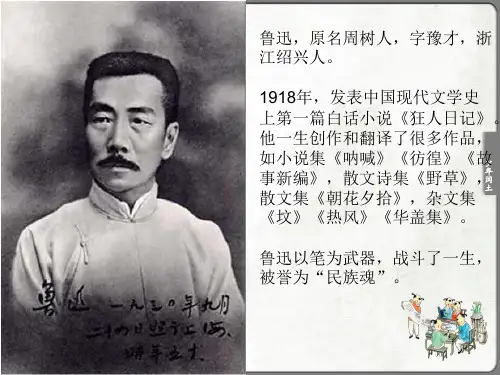 鲁迅，原名周树人，字豫才，浙
江绍兴人。
1918年，发表中国现代文学史
上第一篇白话小说《狂人日记》。
他一生创作和翻译了很多作品，
如小说集《呐喊》《彷徨》《故
事新编》，散文诗集《野草》，
散文集《朝花夕拾》，杂文集
《坟》《热风》《华盖集》。
鲁迅以笔为武器，战斗了一生，
被誉为“民族魂”。
年闰土
鲁迅 一九三〇年九月
二十四日照于上海，
时年五十